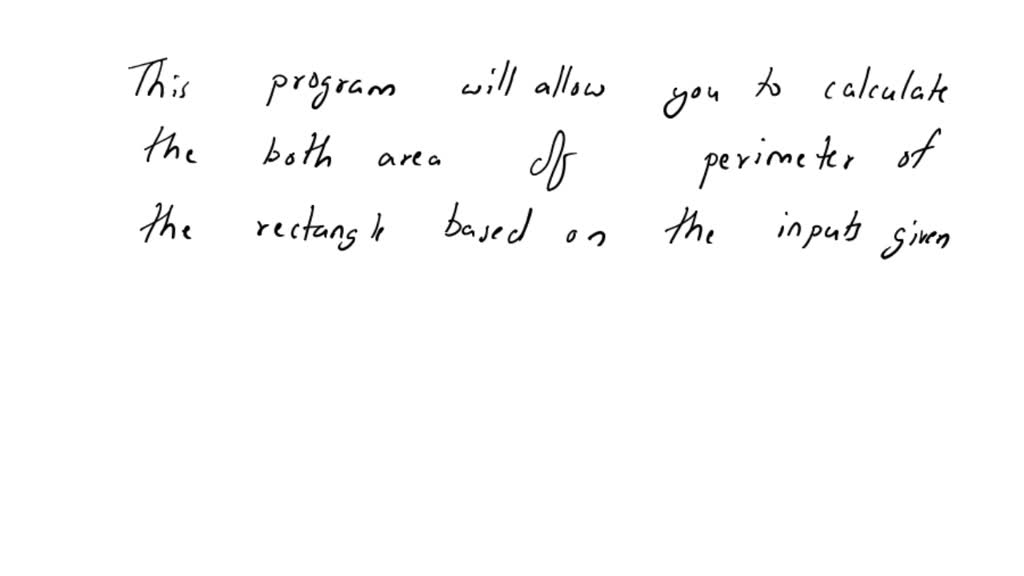 This program will allow you to calculate
the both area of perimeter of
the rectangle based on the inputs given